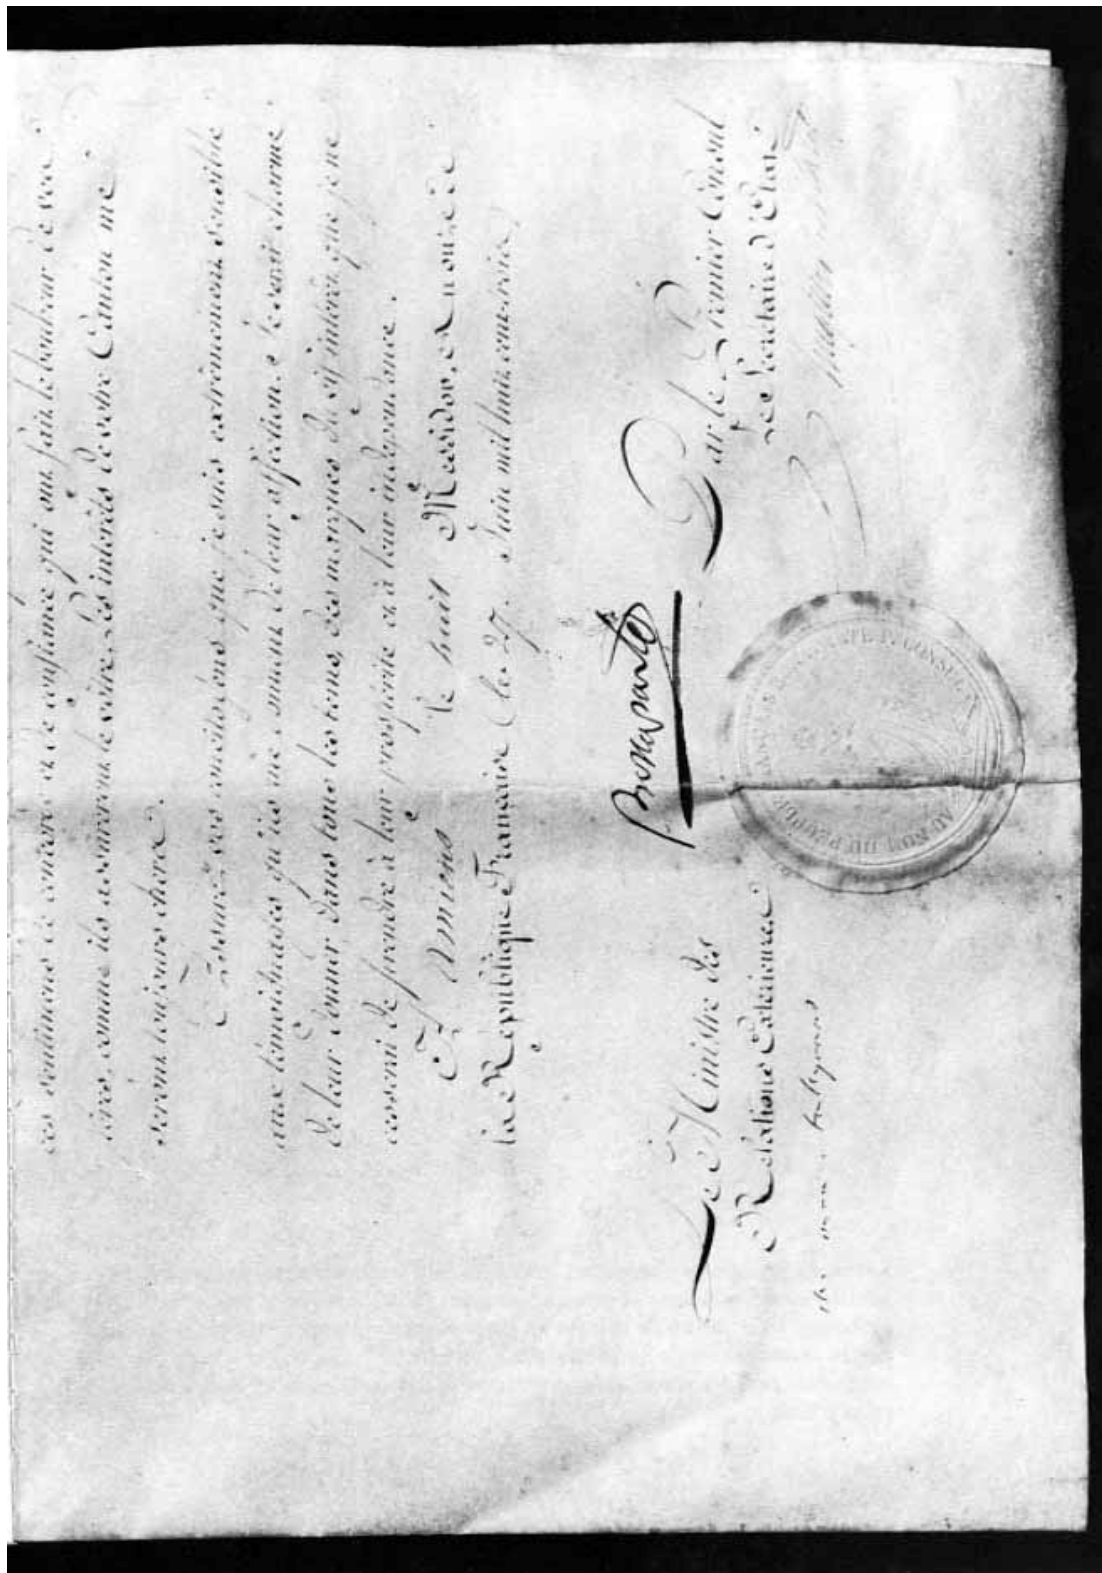 ces sentimens de concorde et de confiance qui ont fait le bonheur de vos
pères, comme ils assureront le vôtre. Les intérêts de votre Canton me
seront toujours chers.
Assurez vos concitoyens que je suis extrêmement sensible
aux témoignages qu'ils me donnent de leur affection. Je serai charmé
de leur donner dans tous les tems, des marques du vif intérêt que je ne
cesserai de prendre à leur prospérité et à leur indépendance.
à Amiens le huit Messidor, an onze de
la République Française (le 27. Juin mil huit cent trois)
Bonaparte
Par le Premier Consul
Le Secrétaire d'Etat
Le Ministre des
Relations Extérieures
AU NOM DU PEUPLE FRANÇAIS BONAPARTE 1er CONSUL